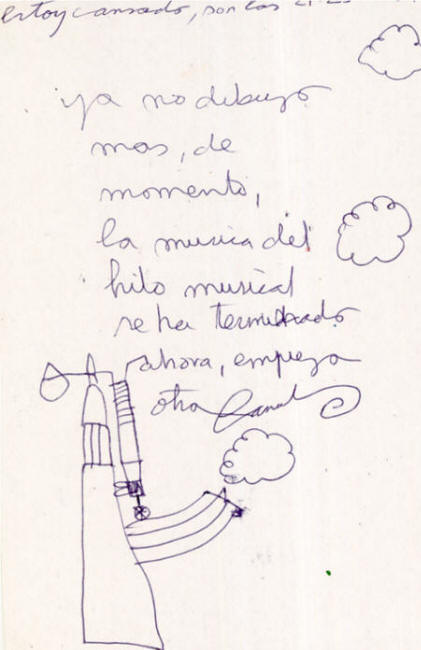 estoy cansado, son las
ya no dibujo
mas, de
momento,
la musica del
hilo musical
se ha terminado
ahora, empieza
otra